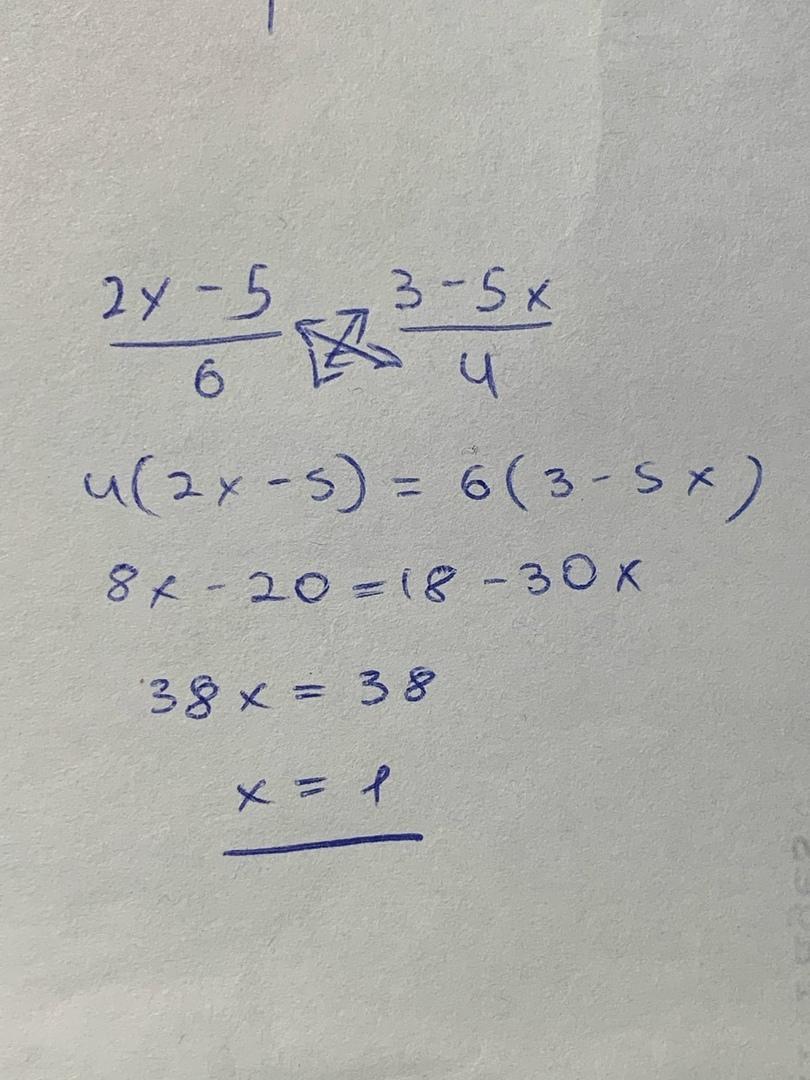 2x - 5 3 - 5x
6 4
4(2x - 5) = 6(3 - 5x)
8x - 20 = 18 - 30x
38x = 38
x = 1